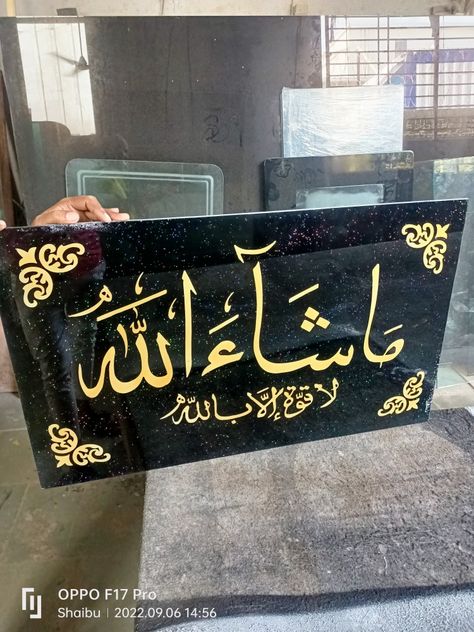 مَا شَآءَ اللّٰهُ
لا قوّة إلّا باللّه
OPPO F17 Pro
Shaibu | 2022.09.06 14:56